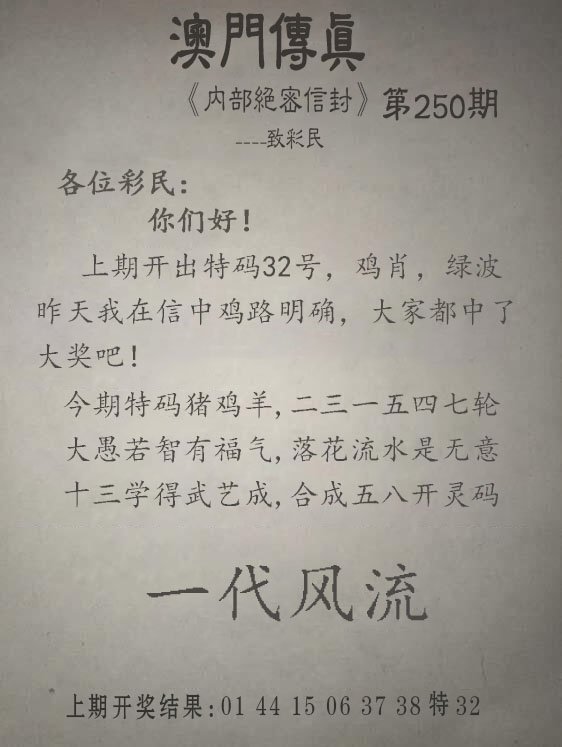 澳門傳眞
《内部絕密信封》第250期
----致彩民
各位彩民：
你们好！
上期开出特码32号，鸡肖，绿波
昨天我在信中鸡路明确，大家都中了
大奖吧！
今期特码猪鸡羊,二三一五四七轮
大愚若智有福气,落花流水是无意
十三学得武艺成,合成五八开灵码
一代风流
上期开奖结果:01 44 15 06 37 38 特32